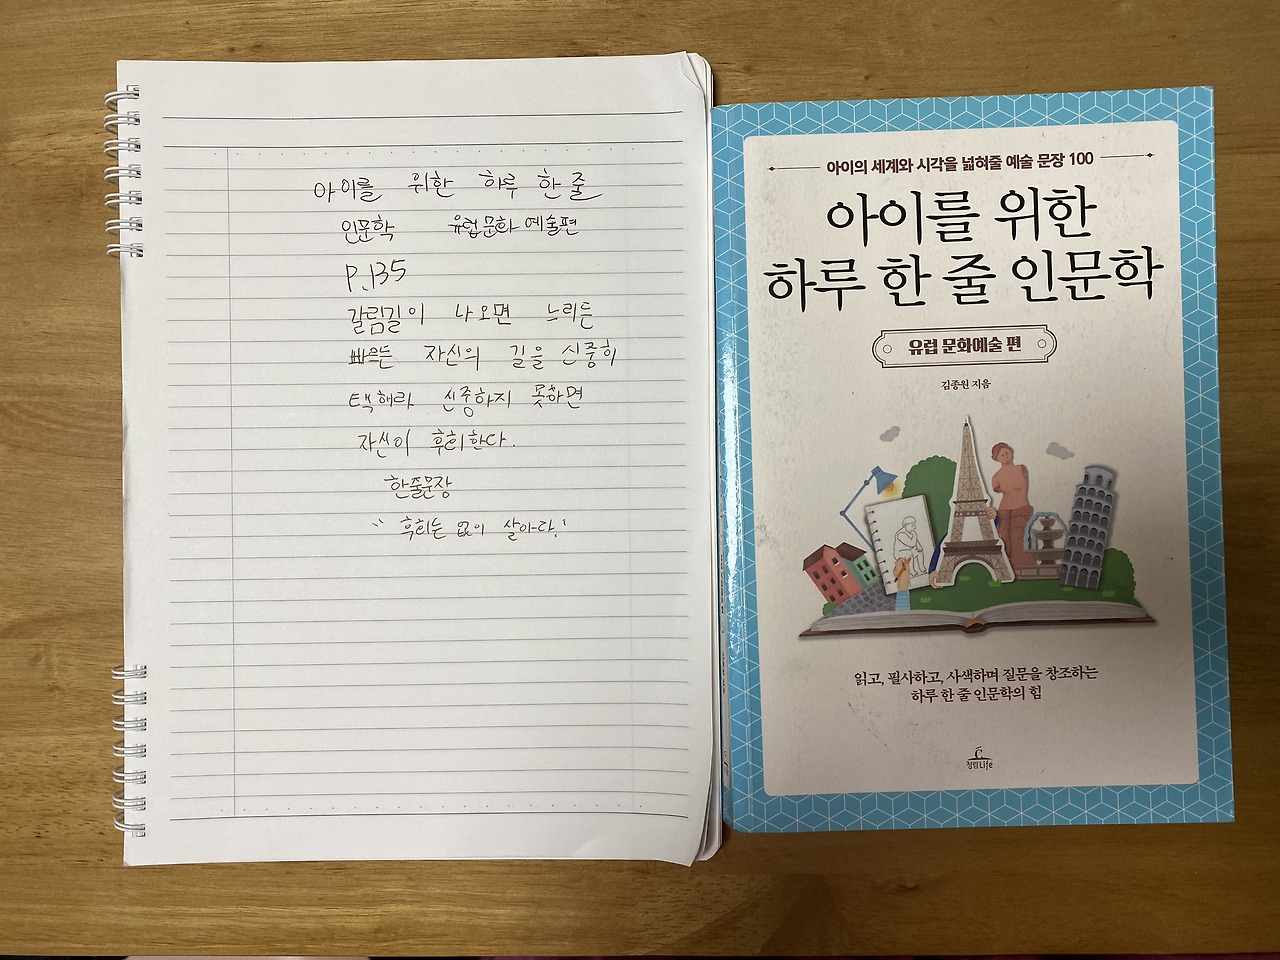 아이를 위한 하루 한 줄
인문학 유럽문화 예술편
P.135
갈림길이 나오면 느리든
빠르든 자신의 길을 신중히
택해라 신중하지 못하면
자신이 후회한다.
한줄문장
"후회는 없이 살아라."
아이의 세계와 시각을 넓혀줄 예술 문장 100
아이를 위한
하루 한 줄 인문학
유럽 문화예술 편
김종원 지음
읽고, 필사하고, 사색하며 질문을 창조하는
하루 한 줄 인문학의 힘
청림Life